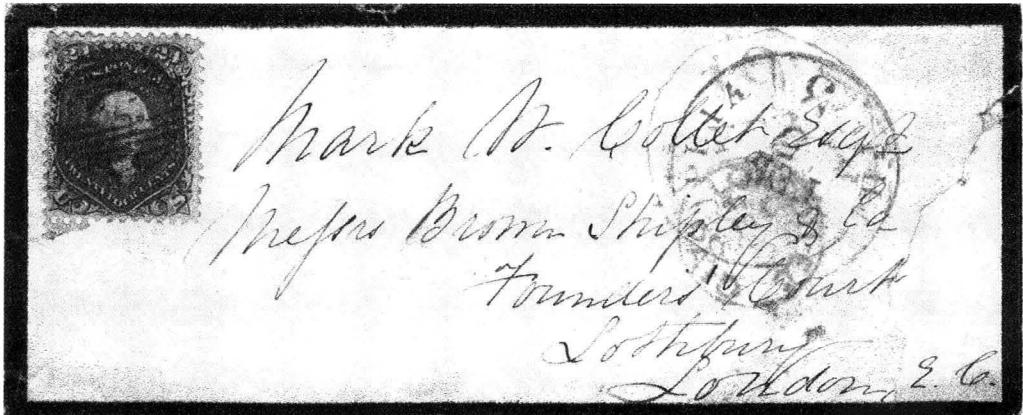 24 24
Mark W. Collet Esqre
Messrs Brown Shipley & Co
Founders Court
Lothbury
London, E. C.